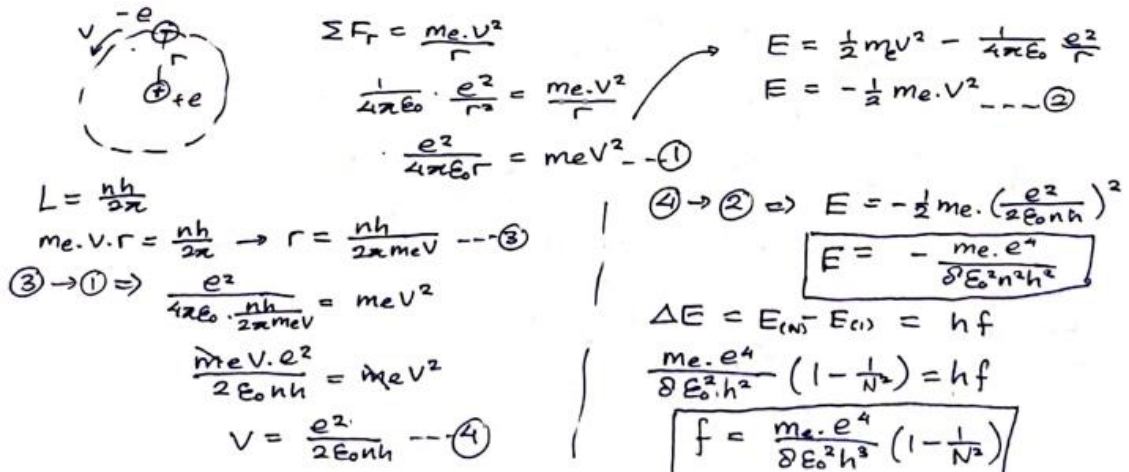 -e
v
r
+e
ΣF_r = me.v²/r
1/4πε₀ · e²/r² = me.v²/r
e²/4πε₀r = mev² --①
L = nh/2π
me.v.r = nh/2π → r = nh/2πmev ---③
③→① ⇒ e²/(4πε₀ · nh/2πmev) = mev²
mev.e²/2ε₀nh = mev²
v = e²/2ε₀nh ---④
E = 1/2 mev² - 1/4πε₀ e²/r
E = -1/2 me.v² ----②
④→② ⇒ E = -1/2 me.(e²/2ε₀nh)²
E = - me.e⁴/8ε₀²n²h²
ΔE = E(N) - E(1) = hf
me.e⁴/8ε₀².h² (1 - 1/N²) = hf
f = me.e⁴/8ε₀²h³ (1 - 1/N²)